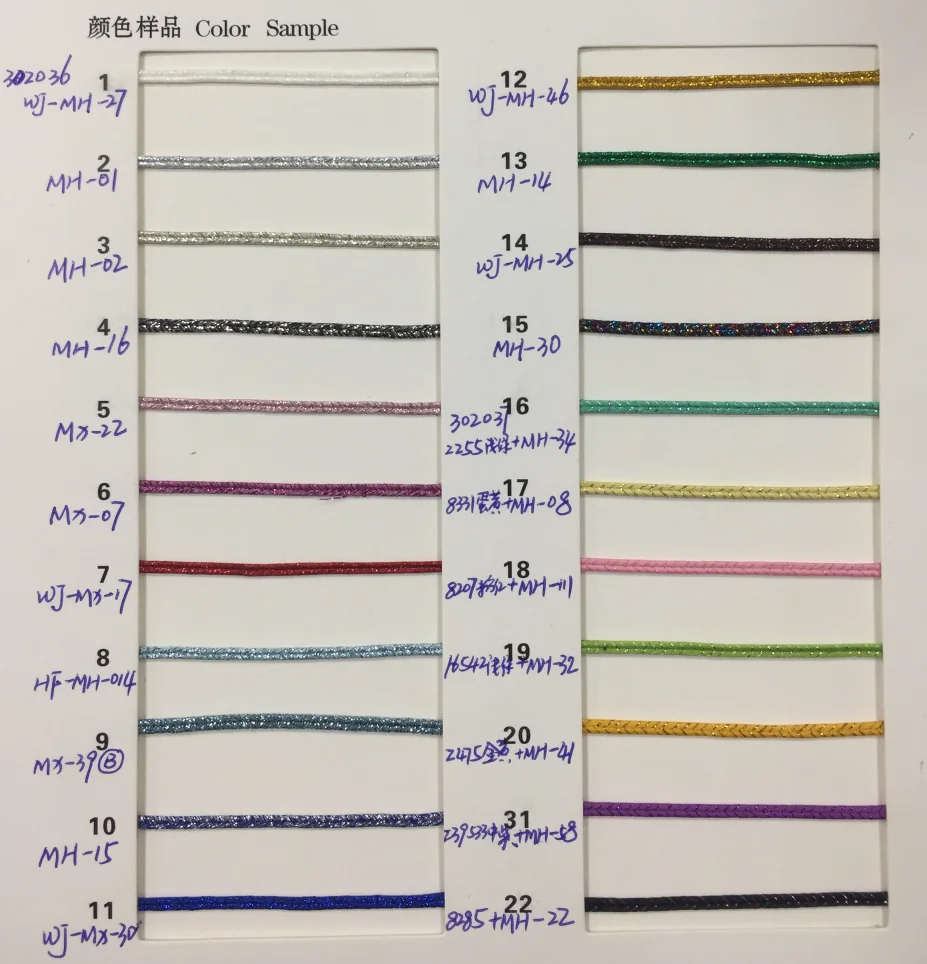 颜色样品 Color Sample
302036
1
WJ-MH-27
2
MH-01
3
MH-02
4
MH-16
5
MX-22
6
MX-07
7
WJ-MX-17
8
HF-MH-014
9
MX-39Ⓑ
10
MH-15
11
WJ-MX-30
12
WJ-MH-46
13
MH-14
14
WJ-MH-25
15
MH-30
16
302031
2255浅绿+MH-34
17
8331蛋黄+MH-08
18
8207粉红+MH-111
19
16542浅绿+MH-32
20
2475金黄+MH-41
31
+MH-58
22
8285+MH-22